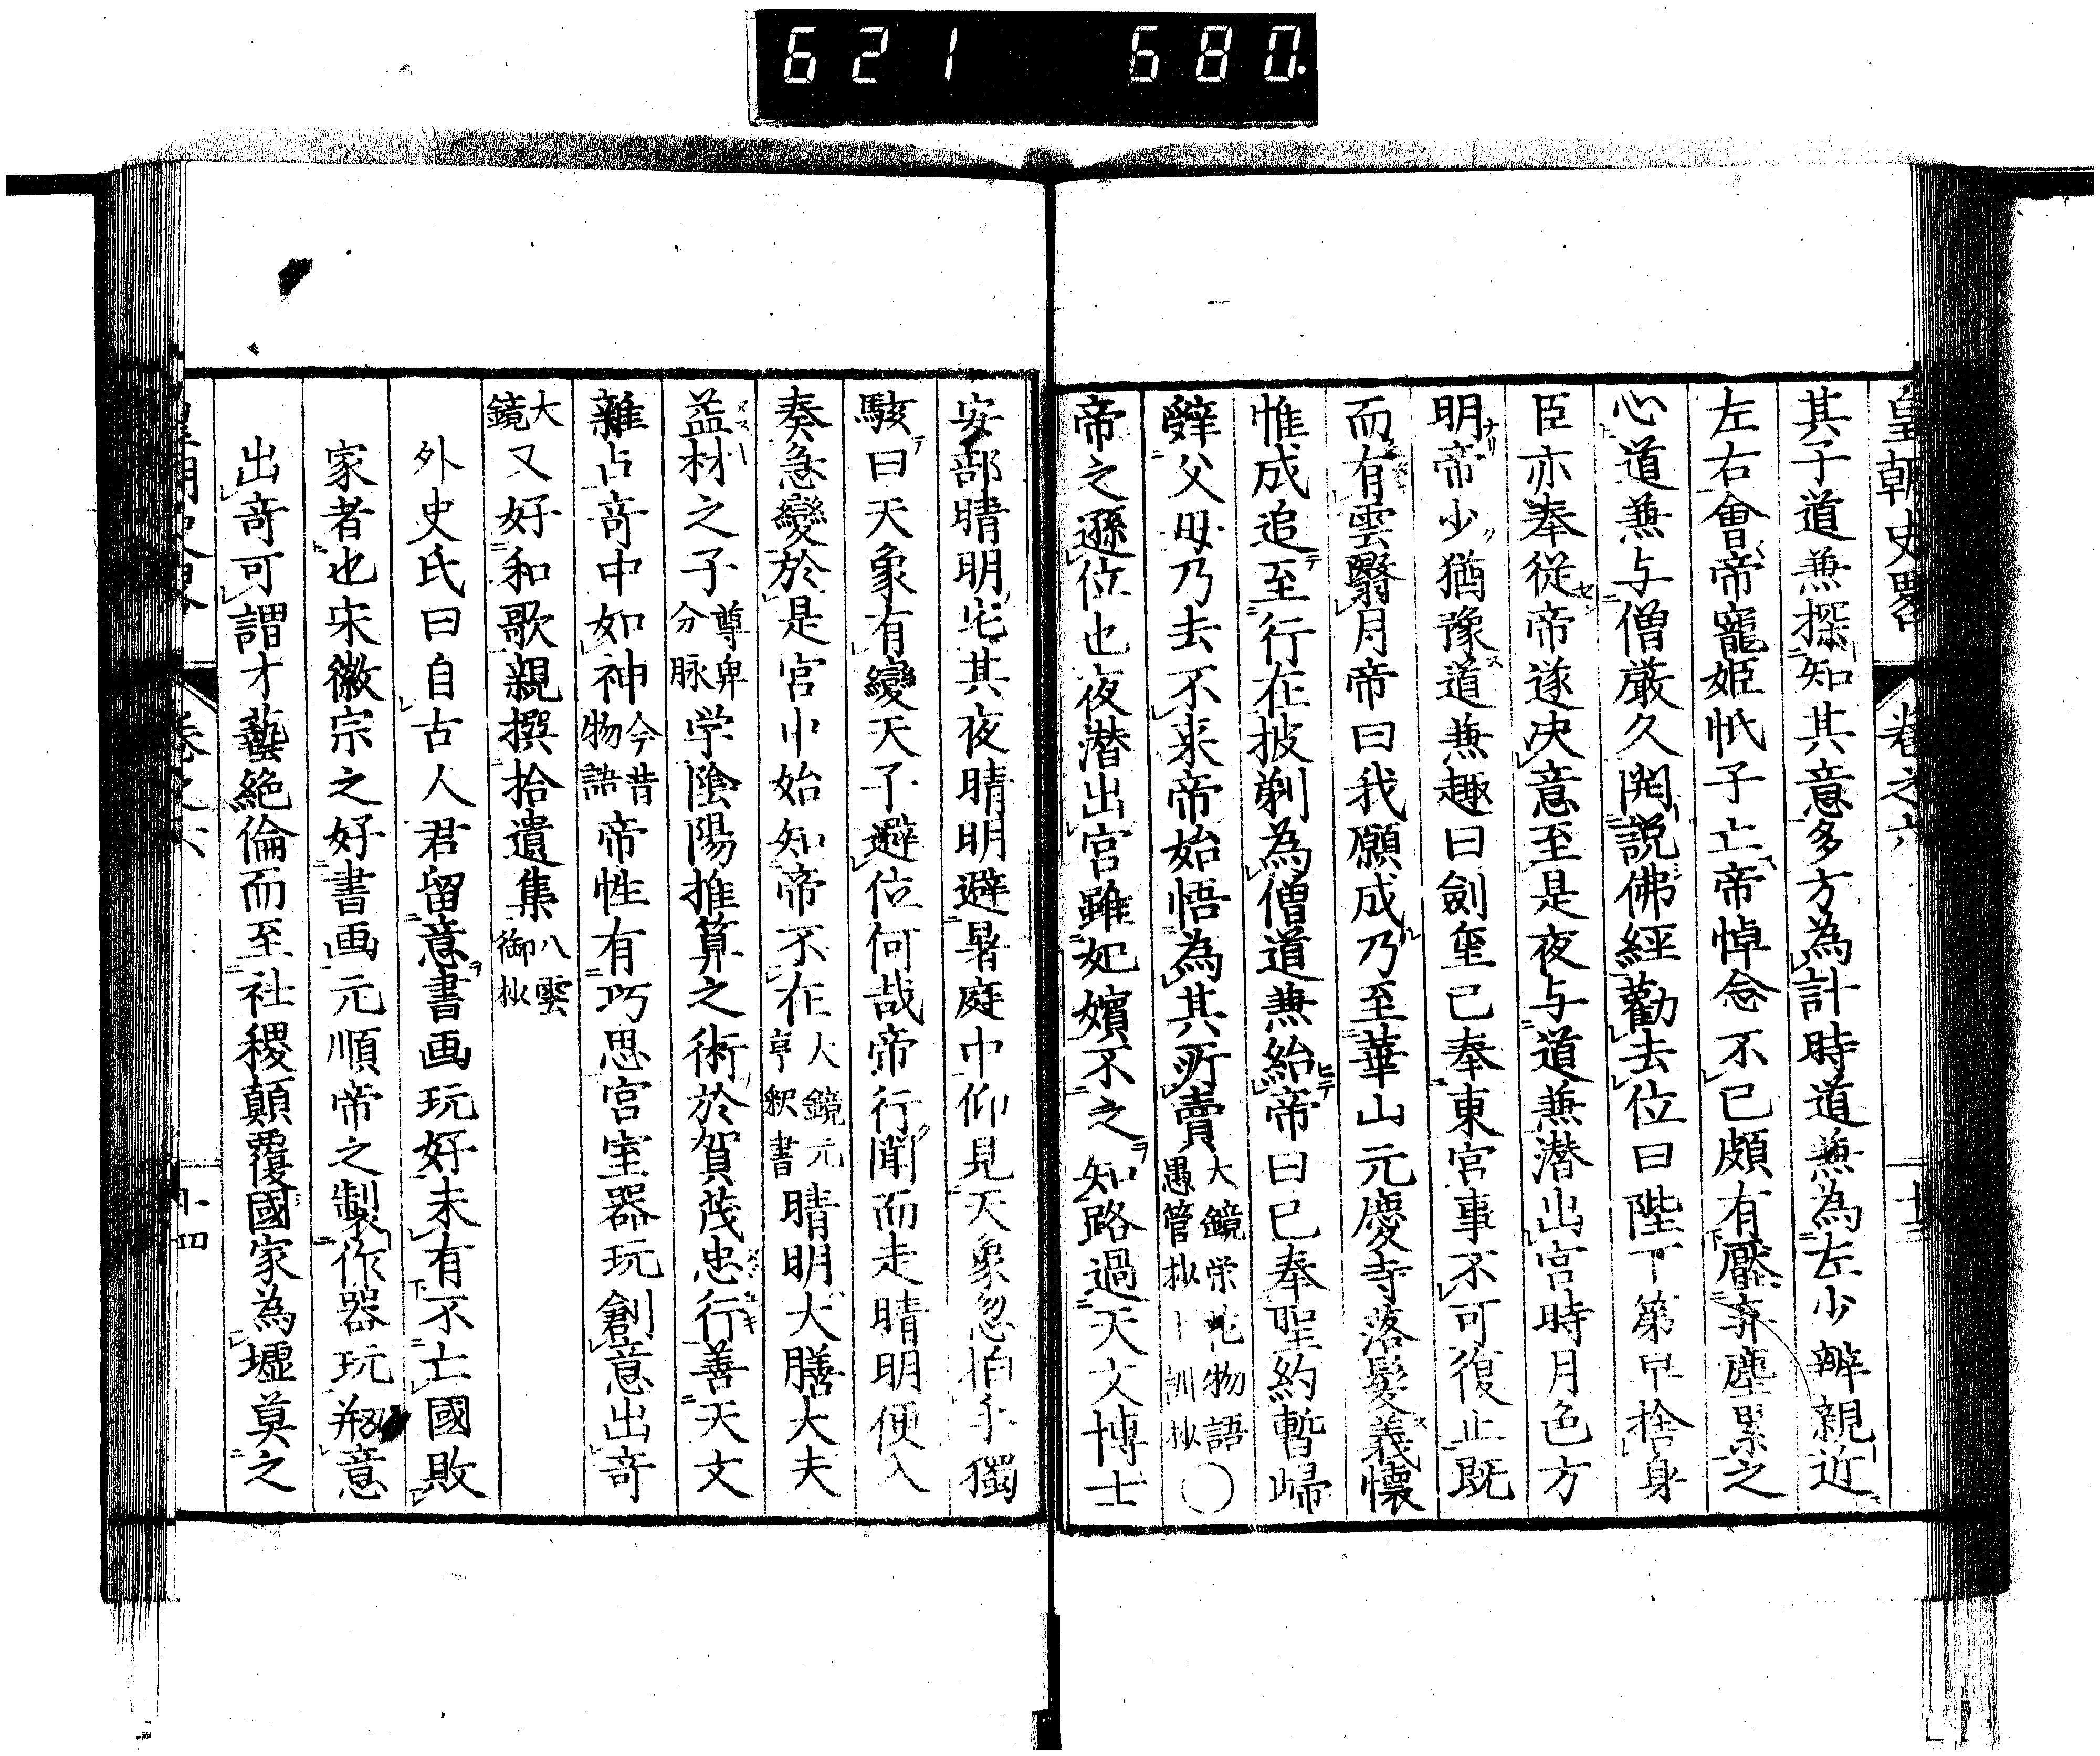 621 680.
皇朝史畧 卷之六 十三
其子道兼探知其意多方為計時道兼為左少辨親近
左右會帝寵姫忯子亡帝悼念不已頗有厭弃塵累之
心道兼与僧厳久開説佛經勸去位曰陛下第早捨身
臣亦奉從帝遂决意至是夜与道兼潜出宮時月色方
明帝少猶豫道兼趣曰劍璽已奉東宮事不可復止既
而有雲翳月帝曰我願成乃至華山元慶寺落髮義懐
惟成追至行在披剃為僧道兼紿帝曰已奉聖約暫歸
辤父毋乃去不来帝始悟為其所賣大鏡栄花物語愚管抄十訓抄〇
帝之遜位也夜潜出宮雖妃嬪不之知路過天文博士
安部晴明宅其夜晴明避暑庭中仰見天象忽拍手獨
駭曰天象有變天子避位何哉帝行聞而走晴明便入
奏急變於是宮中始知帝不在大鏡元亨釈書晴明大膳大夫
益材之子尊卑分脉学陰陽推算之術於賀茂忠行善天文
雜占竒中如神今昔物語帝性有巧思宮室器玩創意出竒
大鏡又好和歌親撰拾遺集八雲御抄
外史氏曰自古人君留意書画玩好未有不亡國敗
家者也宋徽宗之好書画元順帝之製作器玩剏意
出竒可謂才藝絶倫而至社稷顛覆國家為墟莫之
皇朝史畧 卷之六 十四